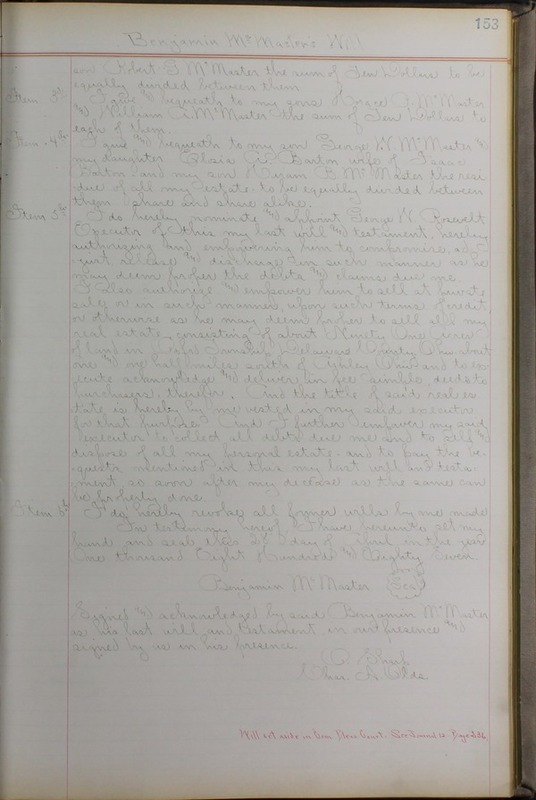 153
Benjamin McMaster's Will
son Robert G McMaster the sum of Ten Dollars to be
equally divided between them
Item 3d I give & bequeath to my sons Horace G. McMaster
& William A. McMaster the sum of Ten Dollars to
each of them.
Item 4th I give & bequeath to my son George W. McMaster &
my daughter Barton wife of Isaac
Barton and my son Hiram B McMaster the resi-
due of all my estate to be equally divided between
them share and share alike.
Item 5th I do hereby nominate & appoint George W. Rosevelt
Executor of this my last will & testament, hereby
authorizing and empowering him to compromise, ad-
just, release & discharge in such manner as he
may deem proper the debts & claims due me
I also authorize & empower him to sell at private
sale or in such manner, upon such terms of credit
or otherwise as he may deem proper to sell all my
real estate, consisting of about Ninety One acres
of land in Township, Delaware County Ohio about
one & one half miles south of Ashley Ohio and to ex-
ecute acknowledge & deliver in fee simple deeds to
purchasers therefor. And the title of said real es-
tate is hereby by me vested in my said executor
for that purpose. And I further empower my said
executor to collect all debts due me and to sell &
dispose of all my personal estate, and to pay the be-
quests mentioned in this my last will and testa-
ment so soon after my decease as the same can
be properly done
Item 6th I do hereby revoke all former wills by me made
In testimony hereof I have hereunto set my
hand and seal this 28 day of April in the year
One thousand Eight Hundred & Eighty Seven
Benjamin McMaster Seal
Signed & acknowledged by said Benjamin McMaster
as his last will and testament, in our presence and
signed by us in his presence
Chas. A.
Will set aside in Com Pleas Court. See Journal Page 226